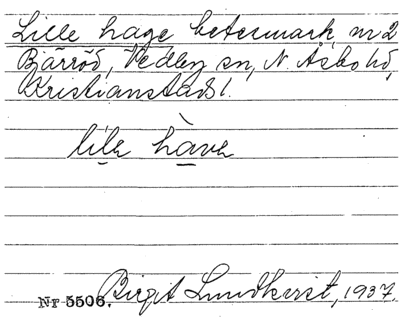 Lille hage betesmark, nr 2
Bärröd, Vedby sn, N. Åsbo hd,
Kristianstads l.
lilə hàvə
Birgit Lundkvist, 1937.
Nr 5506.